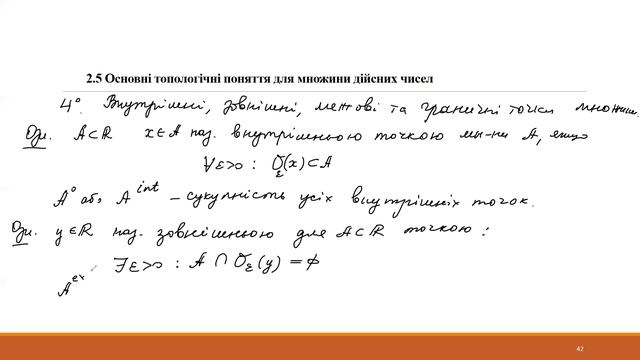 2.5 Основні топологічні поняття для множини дійсних чисел
4°. Внутрішні, зовнішні, межові та граничні точки множини.
Озн. A⊂ℝ x∈A наз. внутрішньою точкою мн-ни A, якщо
∀ε>0 : O_ε(x)⊂A
A° або A^int – сукупність усіх внутрішніх точок.
Озн. y∈ℝ наз. зовнішньою для A⊂ℝ точкою :
∃ε>0 : A ∩ O_ε(y) = ∅
A^ex
42